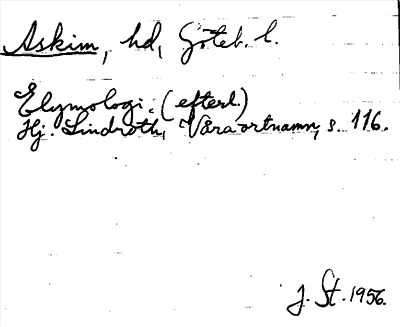 Askim, hd, Göteb. l.
Etymologi: (efterl.)
Hj. Lindroth, Våra ortnamn, s. 116.
J. St. 1956.